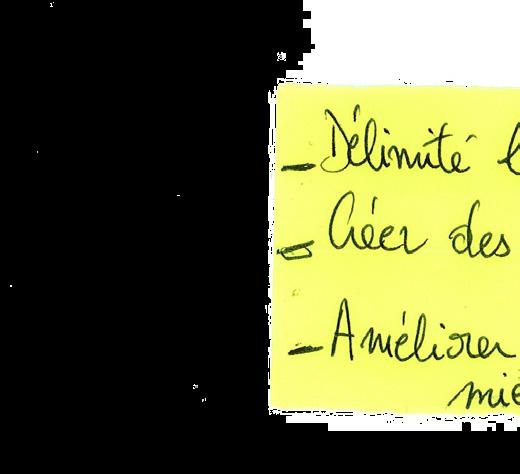 - Délimité
- Créer des
- Améliorer